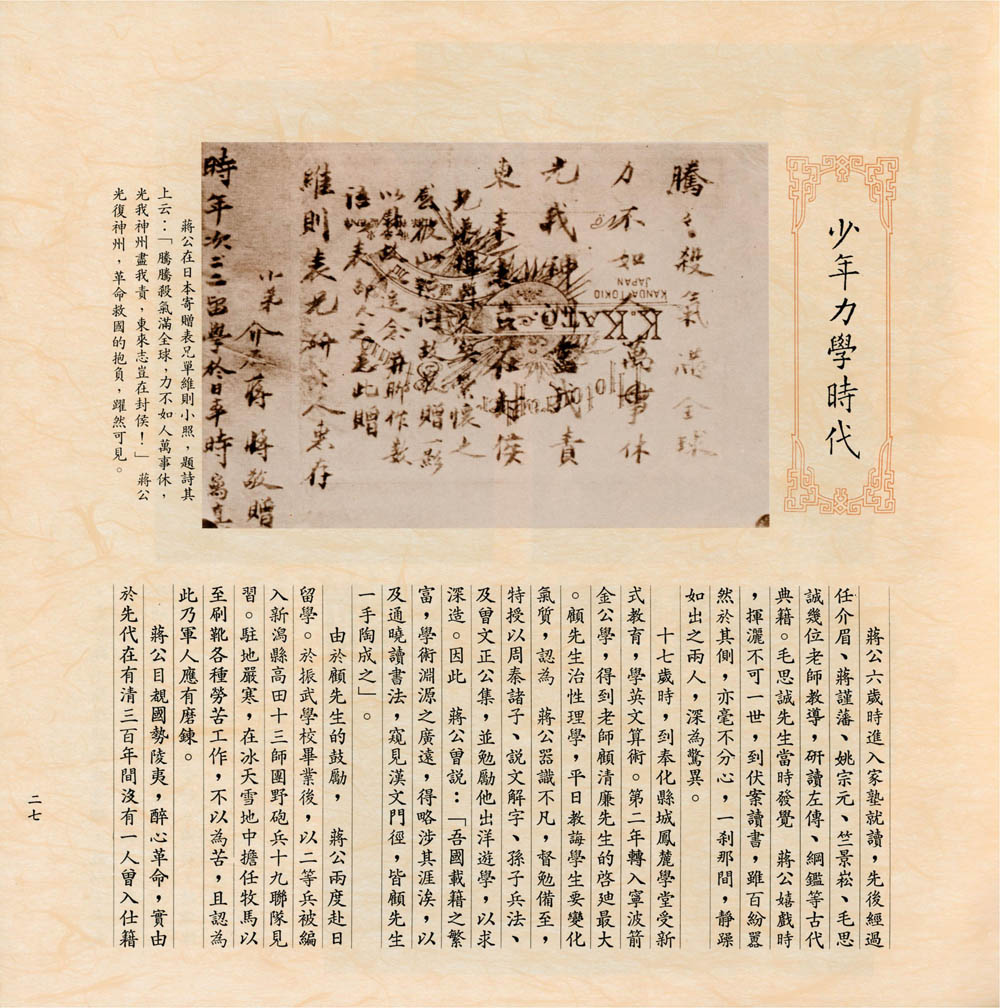 少年力學時代
騰々殺氣滿全球
力不如人萬事休
光我神州盡我責
東來志豈在封侯
語表
此贈
維則表兄研究人惠存
小弟介石蔣
敬贈
K.KATO.
KANDA TOKIO
JAPAN
蔣公在日本寄贈表兄單維則小照，題詩其
上云：「騰騰殺氣滿全球，力不如人萬事休，
光我神州盡我責，東來志豈在封侯！」　蔣公
光復神州，革命救國的抱負，躍然可見。
蔣公六歲時進入家塾就讀，先後經過
任介眉、蔣謹藩、姚宗元、竺景崧、毛思
誠幾位老師教導，研讀左傳、綱鑑等古代
典籍。毛思誠先生當時發覺　蔣公嬉戲時
，揮灑不可一世，到伏案讀書，雖百紛囂
然於其側，亦毫不分心，一剎那間，靜躁
如出之兩人，深為驚異。
十七歲時，到奉化縣城鳳麓學堂受新
式教育，學英文算術。第二年轉入寧波箭
金公學，得到老師顧清廉先生的啓廸最大
。顧先生治性理學，平日教誨學生要變化
氣質，認為　蔣公器識不凡，督勉備至，
特授以周秦諸子、說文解字、孫子兵法、
及曾文正公集，並勉勵他出洋遊學，以求
深造。因此　蔣公曾說：「吾國載籍之繁
富，學術淵源之廣遠，得略涉其涯涘，以
及通曉讀書法，窺見漢文門徑，皆顧先生
一手陶成之」。
由於顧先生的鼓勵，　蔣公兩度赴日
留學。於振武學校畢業後，以二等兵被編
入新潟縣高田十三師團野砲兵十九聯隊見
習。駐地嚴寒，在冰天雪地中擔任牧馬以
至刷靴各種勞苦工作，不以為苦，且認為
此乃軍人應有磨鍊。
蔣公目覩國勢陵夷，醉心革命，實由
於先代在有清三百年間沒有一人曾入仕籍
二七